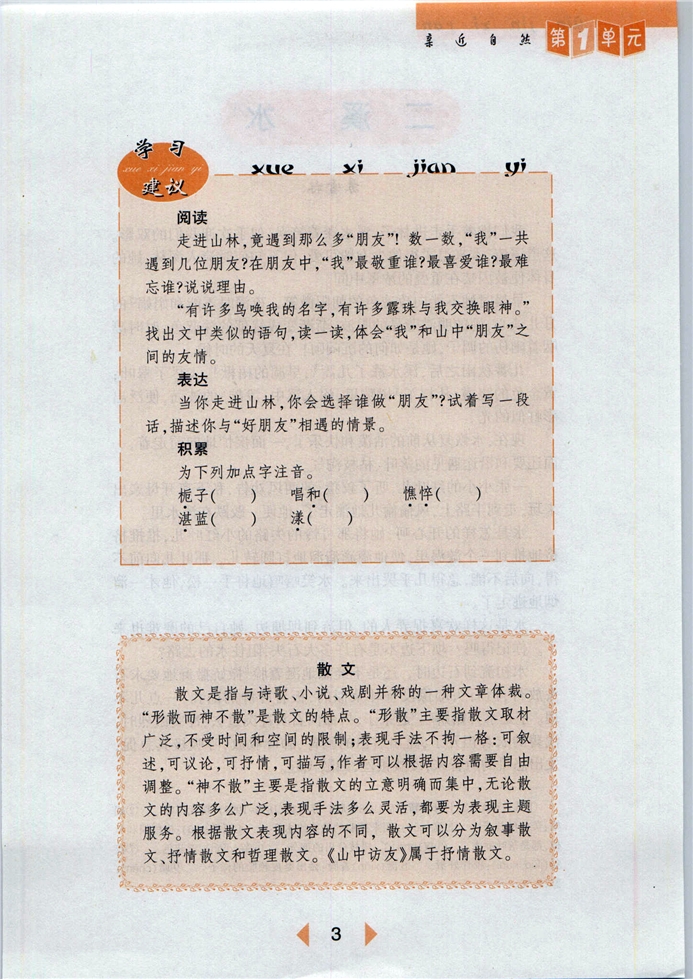 亲近自然 第1单元
学习
xue xi jian yi
建议
xue xi jian yi
阅读
走进山林,竟遇到那么多“朋友”! 数一数,“我”一共
遇到几位朋友?在朋友中,“我”最敬重谁?最喜爱谁?最难
忘谁?说说理由。
“有许多鸟唤我的名字,有许多露珠与我交换眼神。”
找出文中类似的语句,读一读,体会“我”和山中“朋友”之
间的友情。
表达
当你走进山林,你会选择谁做“朋友”?试着写一段
话,描述你与“好朋友”相遇的情景。
积累
为下列加点字注音。
栀子( ) 唱和( ) 憔悴( )
湛蓝( ) 漾( )
散文
散文是指与诗歌、小说、戏剧并称的一种文章体裁。
“形散而神不散”是散文的特点。“形散”主要指散文取材
广泛,不受时间和空间的限制;表现手法不拘一格:可叙
述,可议论,可抒情,可描写,作者可以根据内容需要自由
调整。“神不散”主要是指散文的立意明确而集中,无论散
文的内容多么广泛,表现手法多么灵活,都要为表现主题
服务。根据散文表现内容的不同,散文可以分为叙事散
文、抒情散文和哲理散文。《山中访友》属于抒情散文。
3